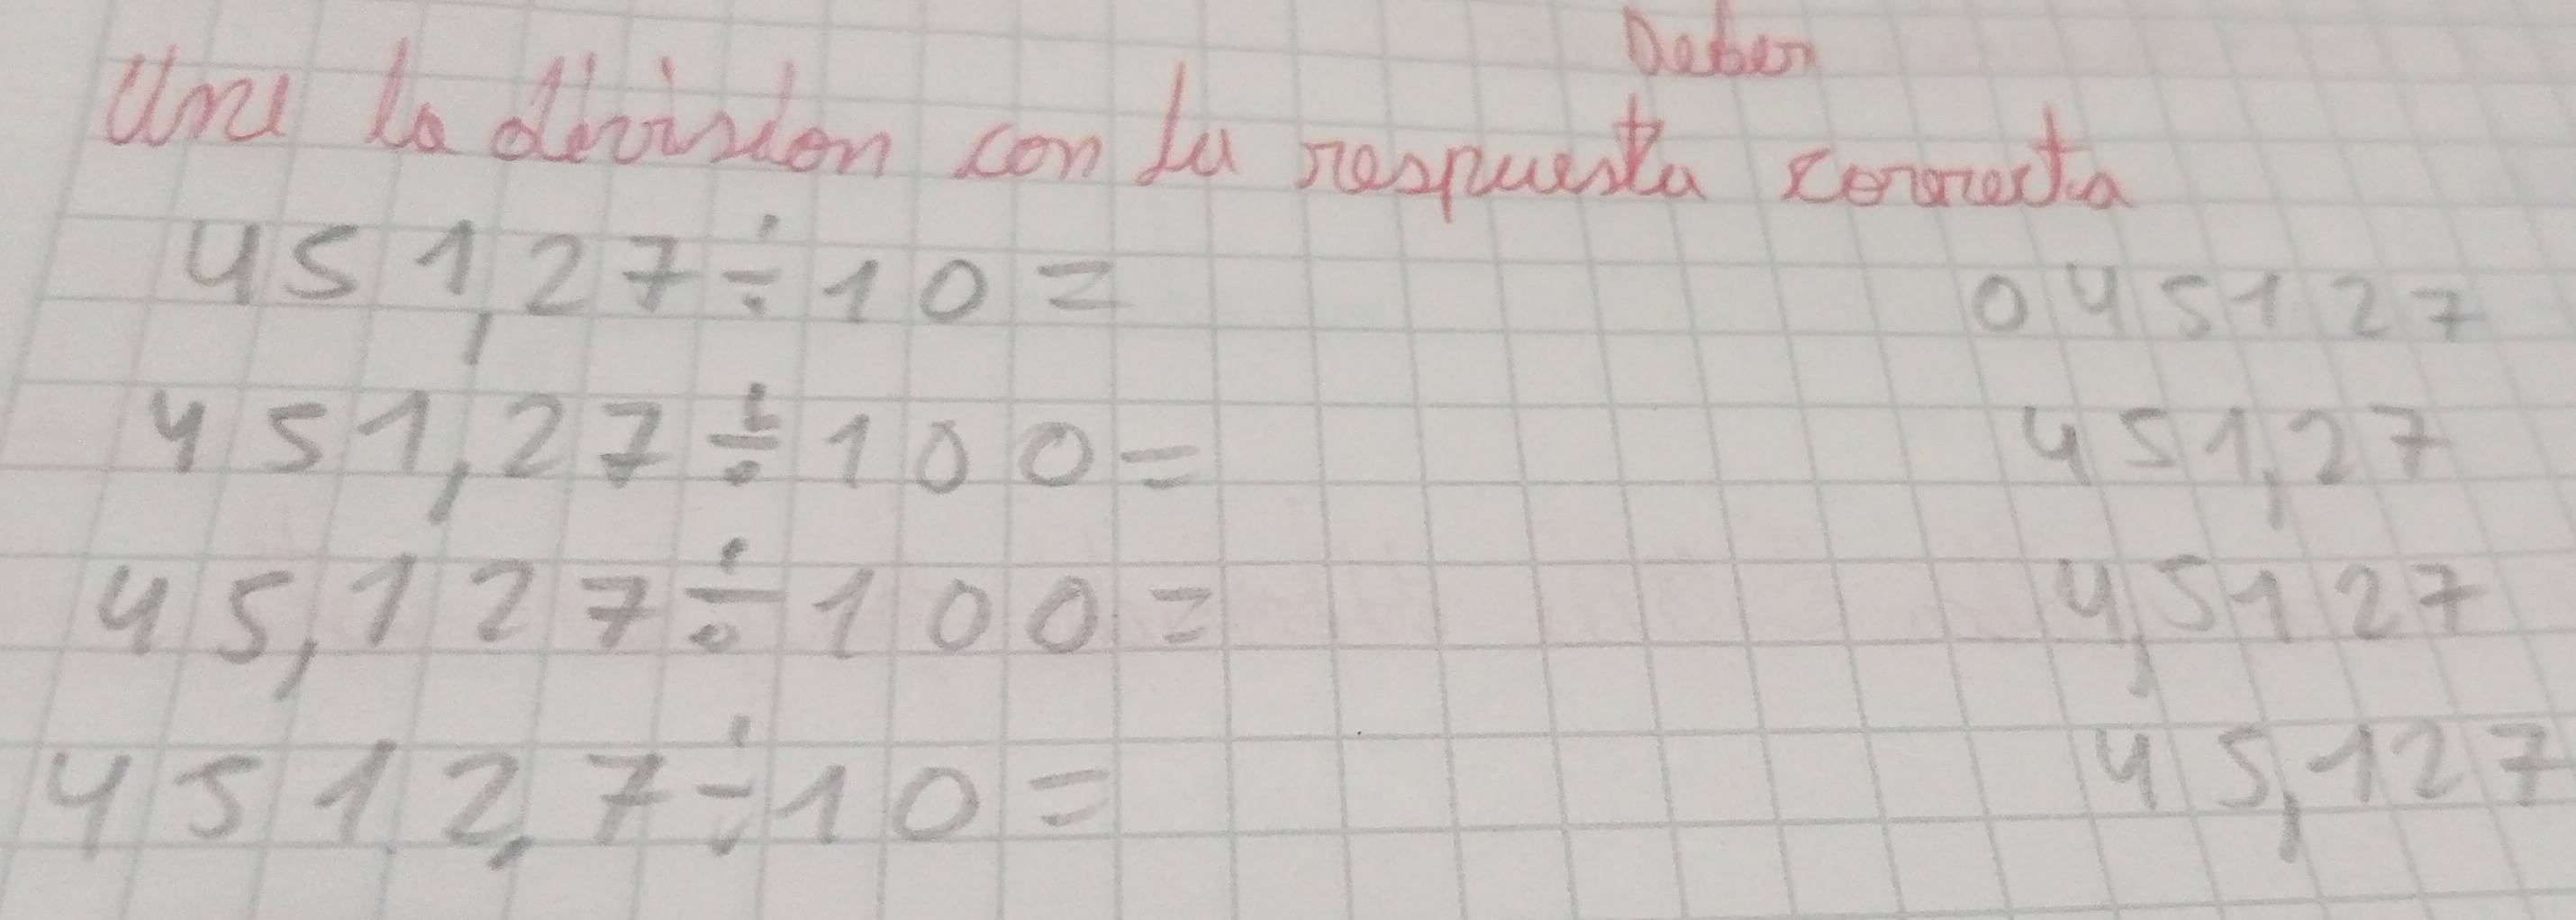 Deber
Une la división con su respuesta correcta
451,27÷10=
045127
451,27÷100=
451,27
45,127÷100=
4,5127
4512,7÷10=
45,127